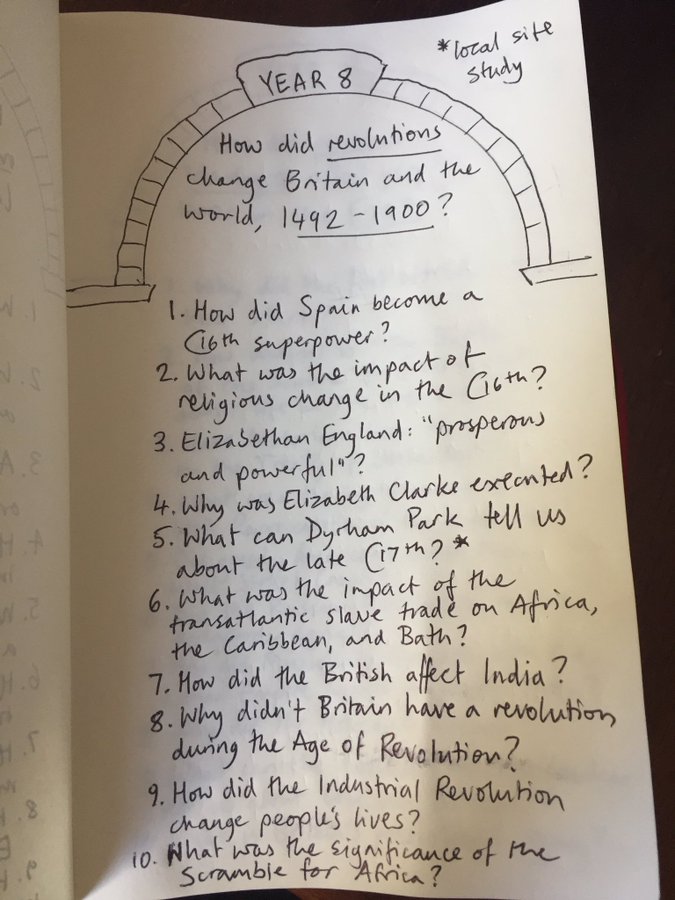 *local site
study
YEAR 8
How did revolutions
change Britain and the
world, 1492-1900?
1. How did Spain become a
C16th superpower?
2. What was the impact of
religious change in the C16th?
3. Elizabethan England: "prosperous
and powerful"?
4. Why was Elizabeth Clarke executed?
5. What can Dyrham Park tell us
about the late C17th?*
6. What was the impact of the
transatlantic slave trade on Africa,
the Caribbean, and Bath?
7. How did the British affect India?
8. Why didn't Britain have a revolution
during the Age of Revolution?
9. How did the Industrial Revolution
change people's lives?
10. What was the significance of the
Scramble for Africa?